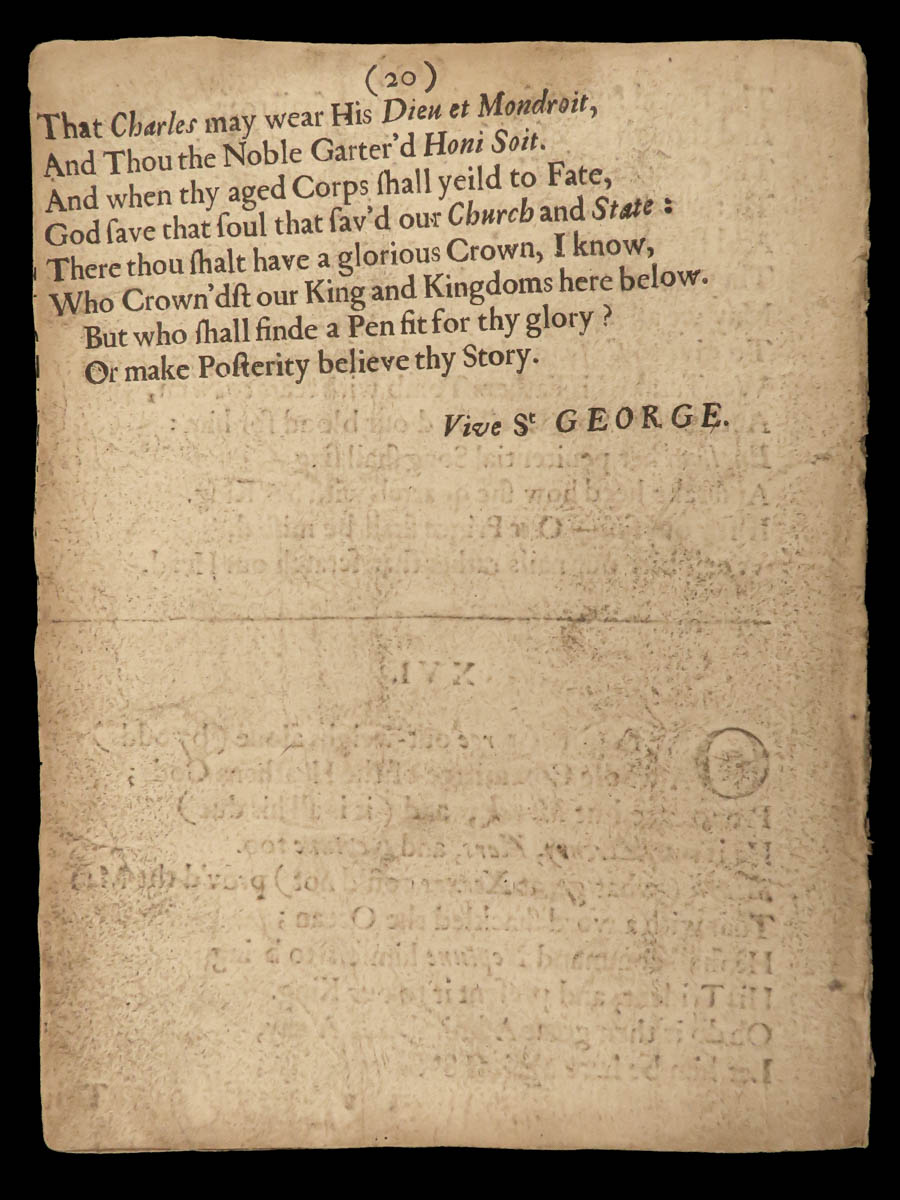 (20)
That Charles may wear His Dieu et Mondroit,
And Thou the Noble Garter'd Honi Soit.
And when thy aged Corps ſhall yeild to Fate,
God ſave that ſoul that ſav'd our Church and State :
There thou ſhalt have a glorious Crown, I know,
Who Crown'dſt our King and Kingdoms here below.
But who ſhall finde a Pen fit for thy glory ?
Or make Poſterity believe thy Story.
Vive St GEORGE.